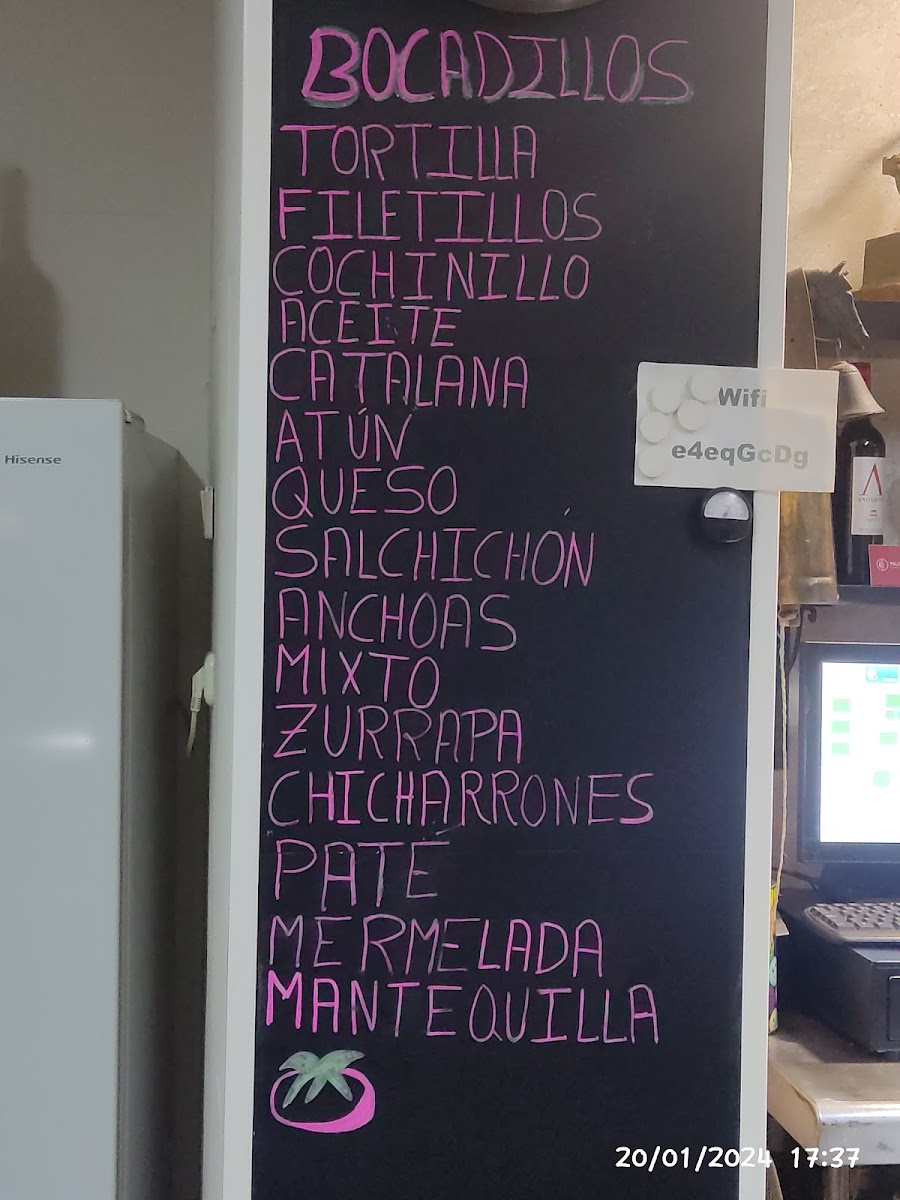 BOCADILLOS
TORTILLA
FILETILLOS
COCHINILLO
ACEITE
CATALANA
ATÚN
QUESO
SALCHICHÓN
ANCHOAS
MIXTO
ZURRAPA
CHICHARRONES
PATÉ
MERMELADA
MANTEQUILLA
Hisense
Wifi
e4eqGcDg
20/01/2024 17:37